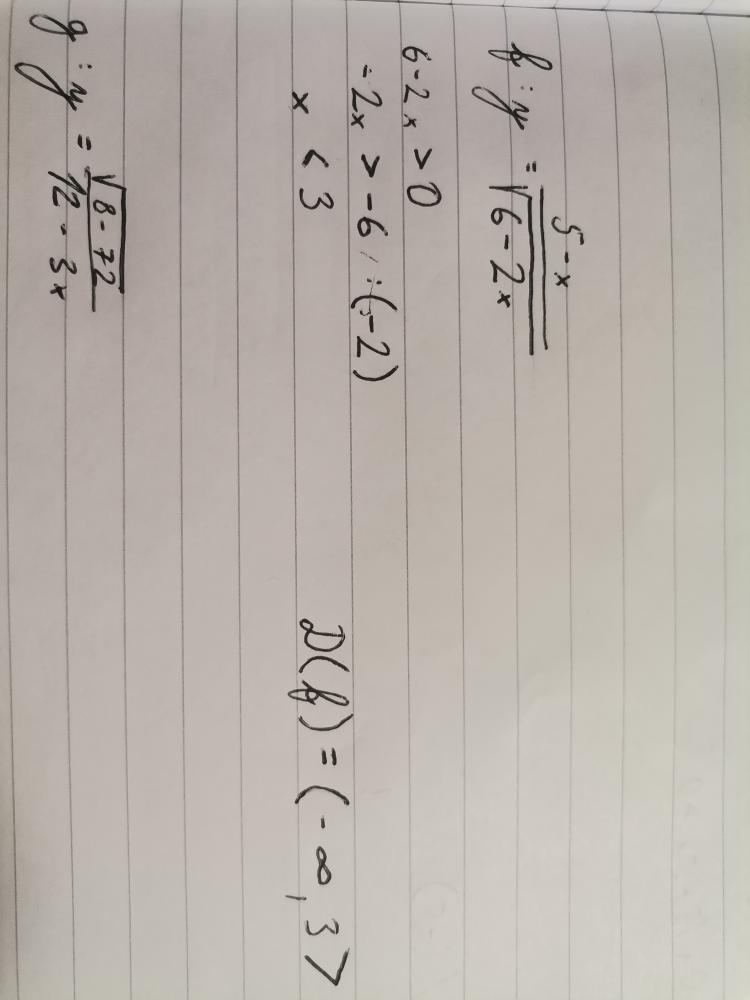 f : y = 5-x / √6-2x
6-2x > 0
-2x > -6 / :(-2)
x < 3 D(f) = (-∞, 3>
g : y = √8-72 / 12-3x